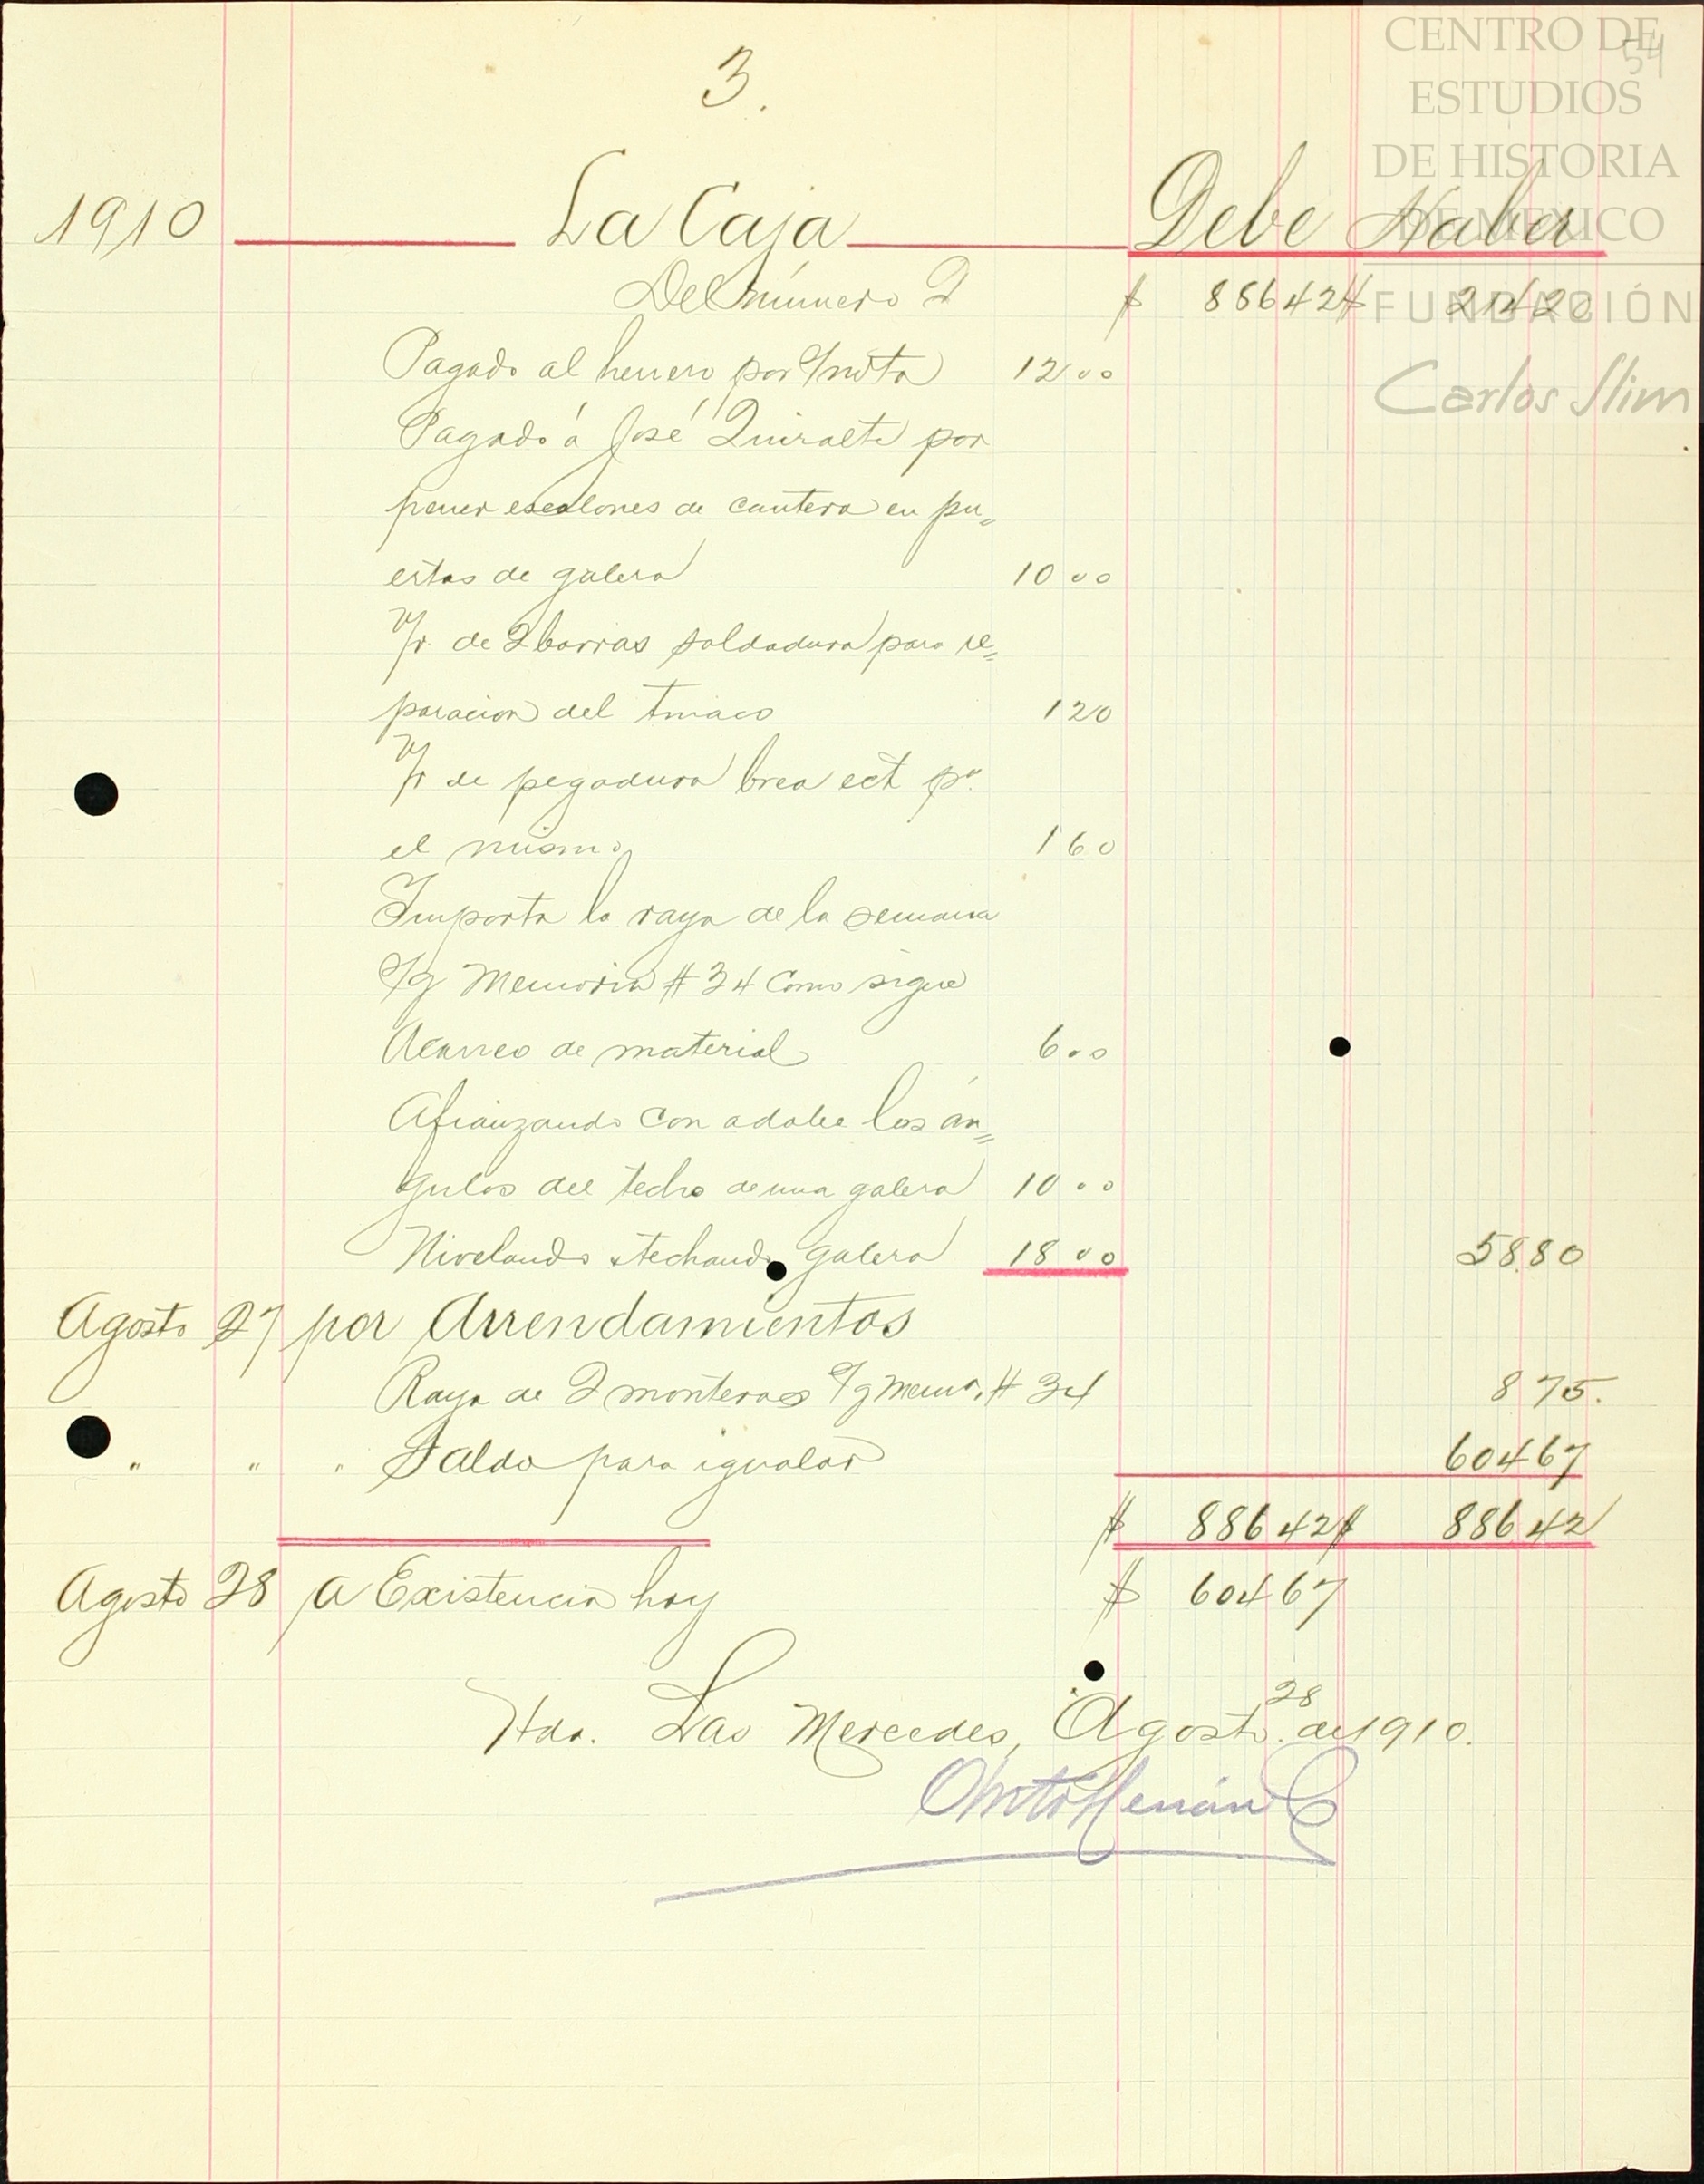 CENTRO DE
ESTUDIOS
DE HISTORIA
DE MEXICO
FUNDACIÓN
Carlos Slim
54
3.
1910 La Caja Debe Haber
Del número 2 $ 886 42 $ 214 20
Pagado al herrero por s/nota 12 00
Pagado á José Quiralte por
poner escalones de cantera en pu„
ertas de galera 10 00
V/r. de 2 barras soldadura para re„
paracion del tinaco 1 20
V/r de pegadura brea ect pa.
el mismo 1 60
Importa la raya de la semana
s/g Memoria # 34 como sigue
Acarreo de material 6 00
Afianzando con adobe los án„
gulos del techo de una galera 10 00
Nivelando y techando galera 18 00 58 80
Agosto 27 por Arrendamientos
Raya de 2 monteros s/g Mema. # 34 8 75.
" " " Saldo para igualar 604 67
$ 886 42 $ 886 42
Agosto 28 a Existencia hoy $ 604 67
Hda. Las Mercedes, Agosto 28 de 1910.